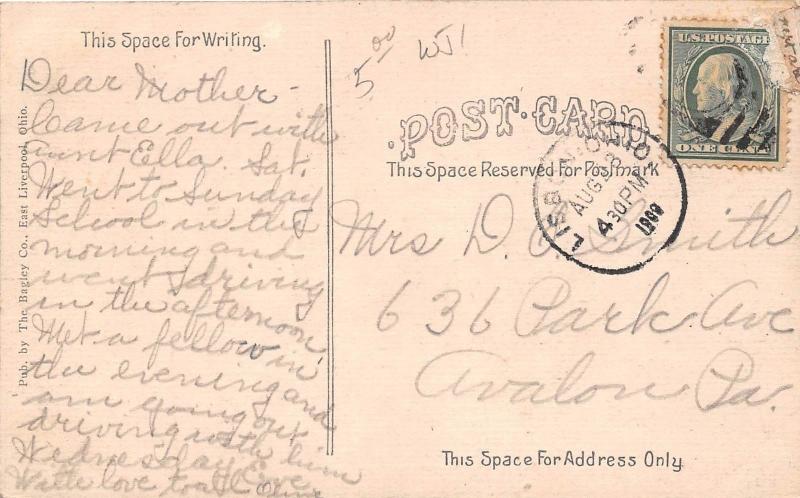 This Space For Writing.
Dear Mother -
Came out with
Aunt Ella. Sat.
Went to Sunday
School in the
morning and
went driving
in the afternoon,
Met a fellow in
the evening and
am going out
driving with him
Wednesday Eve
With love to all Olive
Pub. by The Bagley Co., East Liverpool, Ohio.
5 00 WJ!
POST CARD
This Space Reserved For Postmark
U.S. POSTAGE
ONE CENT
LISBON, OHIO
AUG 23
4 30 PM
1909
Mrs D. Smith
636 Park Ave
Avalon Pa.
This Space For Address Only.